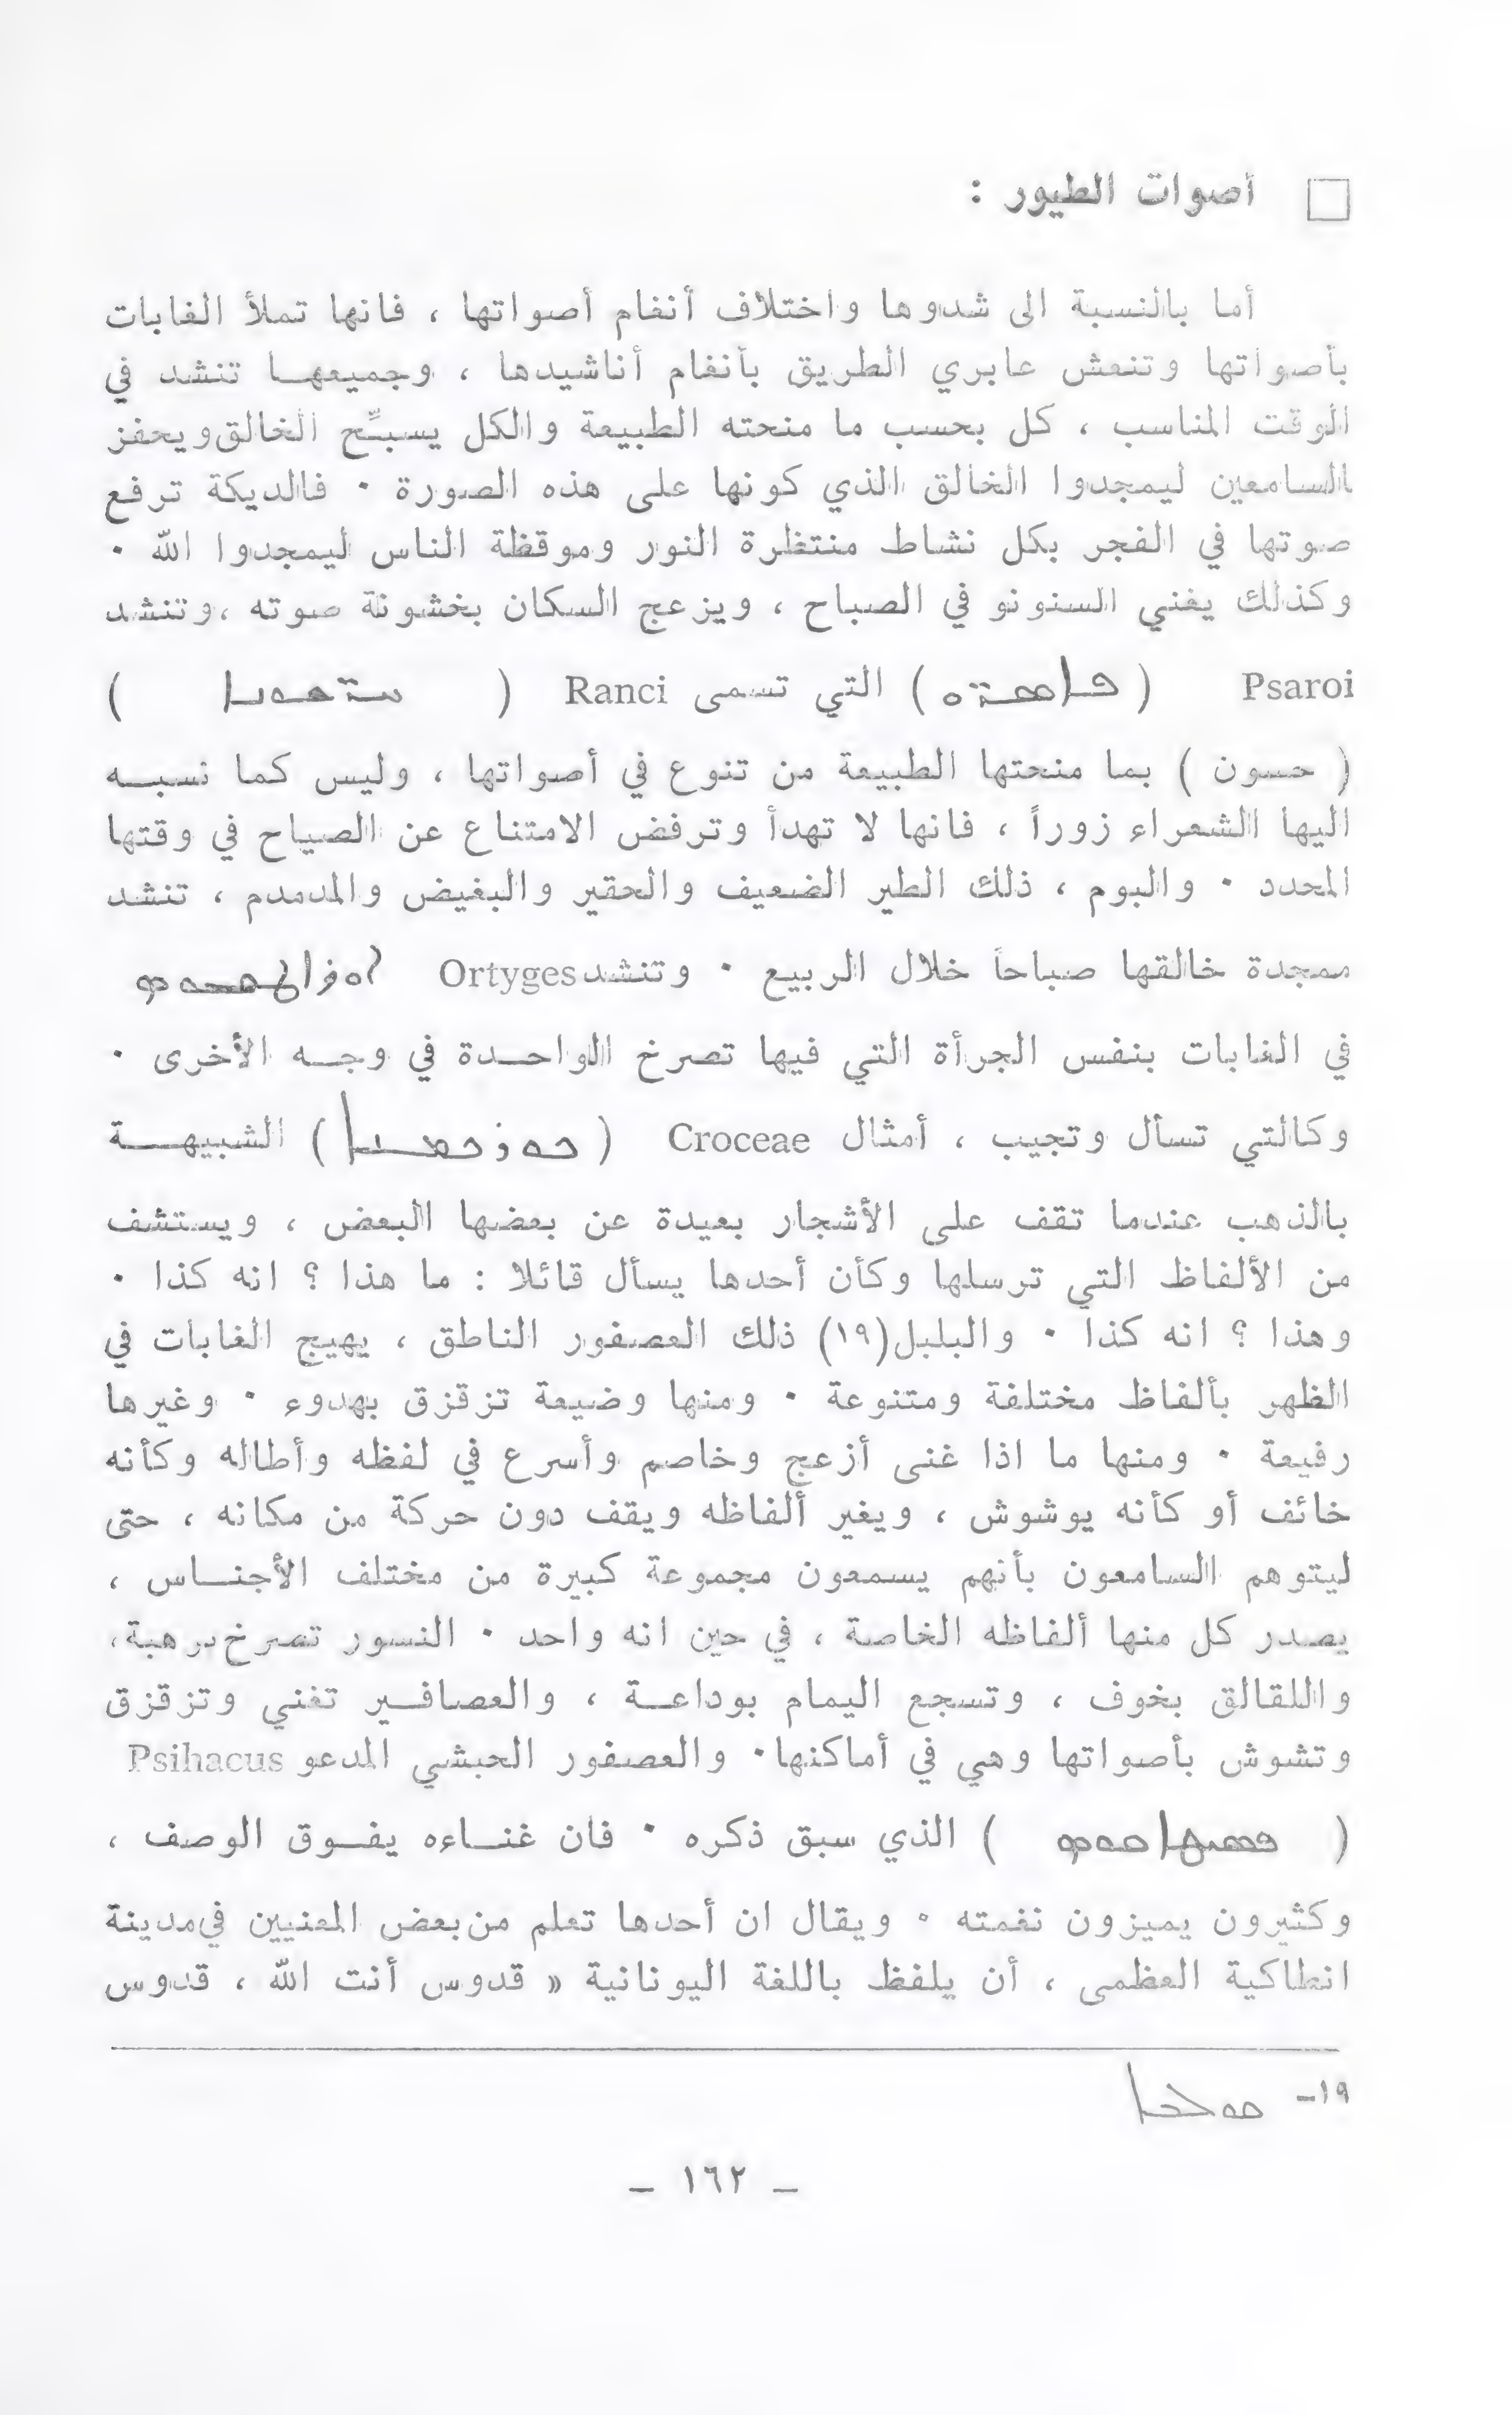 □ أصوات الطيور :
أما بالنسبة الى شدوها واختلاف أنغام أصواتها ، فانها تملأ الغابات
بأصواتها وتنعش عابري الطريق بأنغام أناشيدها ، وجميعهـا تنشد في
الوقت المناسب ، كل بحسب ما منحته الطبيعة والكل يسبّح الخالق ويحفز
السامعين ليمجدوا الخالق الذي كونها على هذه الصورة ٠ فالديكة ترفع
صوتها في الفجر بكل نشاط منتظرة النور وموقظة الناس ليمجدوا الله ٠
وكذلك يغني السنونو في الصباح ، ويزعج السكان بخشونة صوته ،وتنشد
Psaroi ( ) التي تسمى Ranci ( )
( حسون ) بما منحتها الطبيعة من تنوع في أصواتها ، وليس كما نسبـه
اليها الشعراء زوراً ، فانها لا تهدأ وترفض الامتناع عن الصياح في وقتها
المحدد ٠ والبوم ، ذلك الطير الضعيف والحقير والبغيض والمدمدم ، تنشد
ممجدة خالقها صباحاً خلال الربيع ٠ وتنشد Ortyges
في الغابات بنفس الجرأة التي فيها تصرخ الواحـدة في وجـه الأخرى ٠
وكالتي تسأل وتجيب ، أمثال Croceae ( ) الشبيهـة
بالذهب عندما تقف على الأشجار بعيدة عن بعضها البعض ، ويستشف
من الألفاظ التي ترسلها وكأن أحدها يسأل قائلا : ما هذا ؟ انه كذا ٠
وهذا ؟ انه كذا ٠ والبلبل(١٩) ذلك العصفور الناطق ، يهيج الغابات في
الظهر بألفاظ مختلفة ومتنوعة ٠ ومنها وضيعة تزقزق بهدوء ٠ وغيرها
رفيعة ٠ ومنها ما اذا غنى أزعج وخاصم وأسرع في لفظه وأطاله وكأنه
خائف أو كأنه يوشوش ، ويغير ألفاظه ويقف دون حركة من مكانه ، حتى
ليتوهم السامعون بأنهم يسمعون مجموعة كبيرة من مختلف الأجنـاس ،
يصدر كل منها ألفاظه الخاصة ، في حين انه واحد ٠ النسور تصرخ برهبة،
واللقالق بخوف ، وتسجع اليمام بوداعـة ، والعصافـير تغني وتزقزق
وتشوش بأصواتها وهي في أماكنها٠ والعصفور الحبشي المدعو Psihacus
( ) الذي سبق ذكره ٠ فان غنـاءه يفـوق الوصف ،
وكثيرون يميزون نغمته ٠ ويقال ان أحدها تعلم من بعض المغنيين في مدينة
انطاكية العظمى ، أن يلفظ باللغة اليونانية « قدوس أنت الله ، قدوس
١٩-
– ١٦٢ –